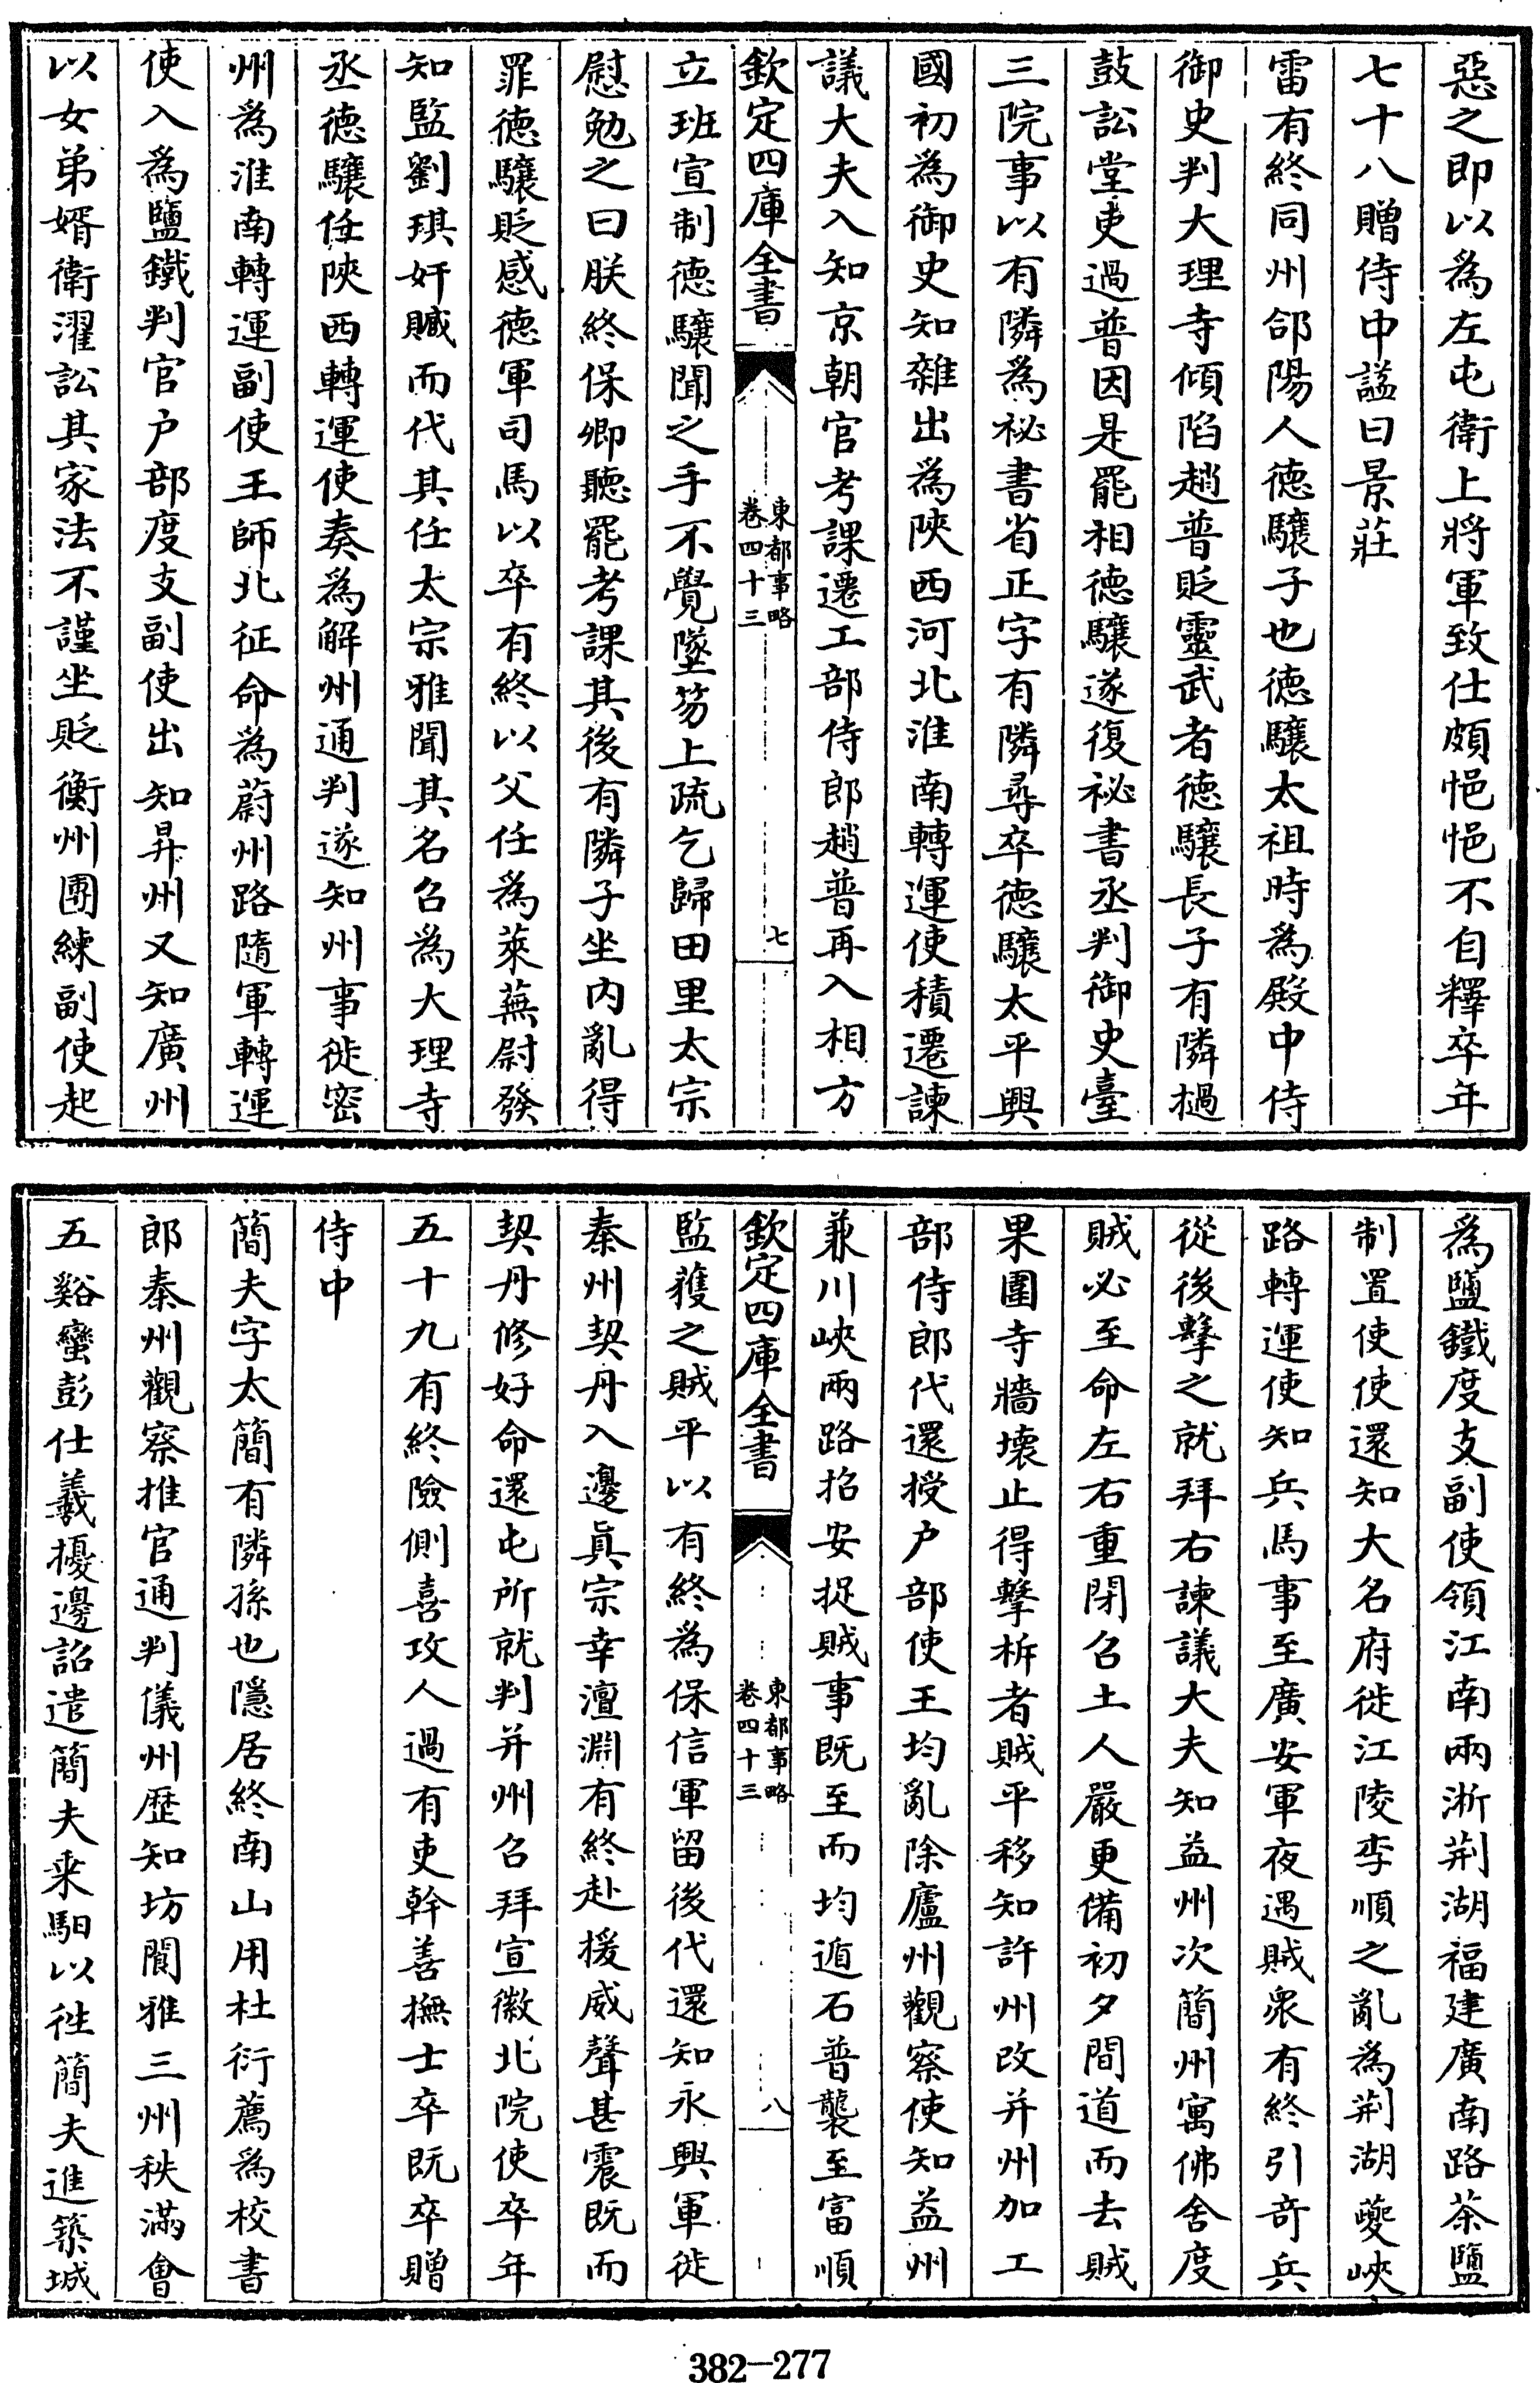 惡之即以為左屯衛上將軍致仕頗悒悒不自釋卒年
七十八贈侍中諡曰景莊
雷有終同州郃陽人德驤子也德驤太祖時為殿中侍
御史判大理寺傾陷趙普貶靈武者德驤長子有隣撾
鼓訟堂吏過普因是罷相德驤遂復祕書丞判御史臺
三院事以有隣為祕書省正字有隣尋卒德驤太平興
國初為御史知雜出為陝西河北淮南轉運使積遷諫
議大夫入知京朝官考課遷工部侍郎趙普再入相方
欽定四庫全書
東都事略
卷四十三
七
立班宣制德驤聞之手不覺墜笏上疏乞歸田里太宗
慰勉之曰朕終保卿聽罷考課其後有隣子坐內亂得
罪德驤貶感德軍司馬以卒有終以父任為萊蕪尉發
知監劉琪奸贓而代其任太宗雅聞其名召為大理寺
丞德驤任陝西轉運使奏為解州通判遂知州事徙密
州為淮南轉運副使王師北征命為蔚州路隨軍轉運
使入為鹽鐵判官户部度支副使出知昇州又知廣州
以女弟婿衛濯訟其家法不謹坐貶衡州團練副使起
為鹽鐵度支副使領江南兩浙荆湖福建廣南路茶鹽
制置使使還知大名府徙江陵李順之亂為荆湖夔峽
路轉運使知兵馬事至廣安軍夜遇賊衆有終引奇兵
從後擊之就拜右諫議大夫知益州次簡州寓佛舍度
賊必至命左右重閉召土人嚴更備初夕間道而去賊
果圍寺牆壞止得擊柝者賊平移知許州改并州加工
部侍郎代還授户部使王均亂除廬州觀察使知益州
兼川峽兩路招安捉賊事既至而均遁石普襲至富順
欽定四庫全書
東都事略
卷四十三
八
監獲之賊平以有終為保信軍留後代還知永興軍徙
秦州契丹入邊眞宗幸澶淵有終赴援威聲甚震既而
契丹修好命還屯所就判并州召拜宣徽北院使卒年
五十九有終險側喜攻人過有吏幹善撫士卒既卒贈
侍中
簡夫字太簡有隣孫也隱居終南山用杜衍薦為校書
郎秦州觀察推官通判儀州歴知坊閬雅三州秩滿會
五谿蠻彭仕羲擾邊詔遣簡夫乘馹以徃簡夫進築城
382-277